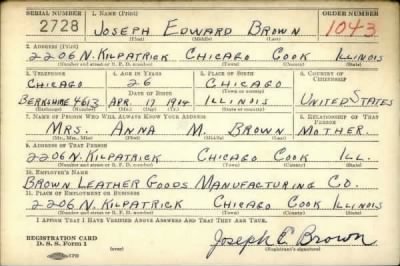 SERIAL NUMBER 1. NAME (Print) ORDER NUMBER
2728 JOSEPH EDWARD BROWN 1043
(First) (Middle) (Last)
2. ADDRESS (Print)
2206 N. KILPATRICK CHICAGO COOK ILLINOIS
(Number and street or R. F. D. number) (Town) (County) (State)
3. TELEPHONE 4. AGE IN YEARS 5. PLACE OF BIRTH 6. COUNTRY OF CITIZENSHIP
CHICAGO 26 CHICAGO
DATE OF BIRTH (Town or county)
BERKSHIRE 4613 APR. 17 1914 ILLINOIS UNITED STATES
(Exchange) (Number) (Mo.) (Day) (Yr.) (State or country)
7. NAME OF PERSON WHO WILL ALWAYS KNOW YOUR ADDRESS 8. RELATIONSHIP OF THAT PERSON
MRS. ANNA M. BROWN MOTHER.
(Mr., Mrs., Miss) (First) (Middle) (Last)
9. ADDRESS OF THAT PERSON
2206 N. KILPATRICK CHICAGO COOK ILL.
(Number and street or R. F. D. number) (Town) (County) (State)
10. EMPLOYER'S NAME
BROWN LEATHER GOODS MANUFACTURING CO.
11. PLACE OF EMPLOYMENT OR BUSINESS
2206 N. KILPATRICK CHICAGO COOK ILLINOIS
(Number and street or R. F. D. number) (Town) (County) (State)
I AFFIRM THAT I HAVE VERIFIED ABOVE ANSWERS AND THAT THEY ARE TRUE.
REGISTRATION CARD
D. S. S. Form 1 (over) Joseph E. Brown
(Registrant's signature)